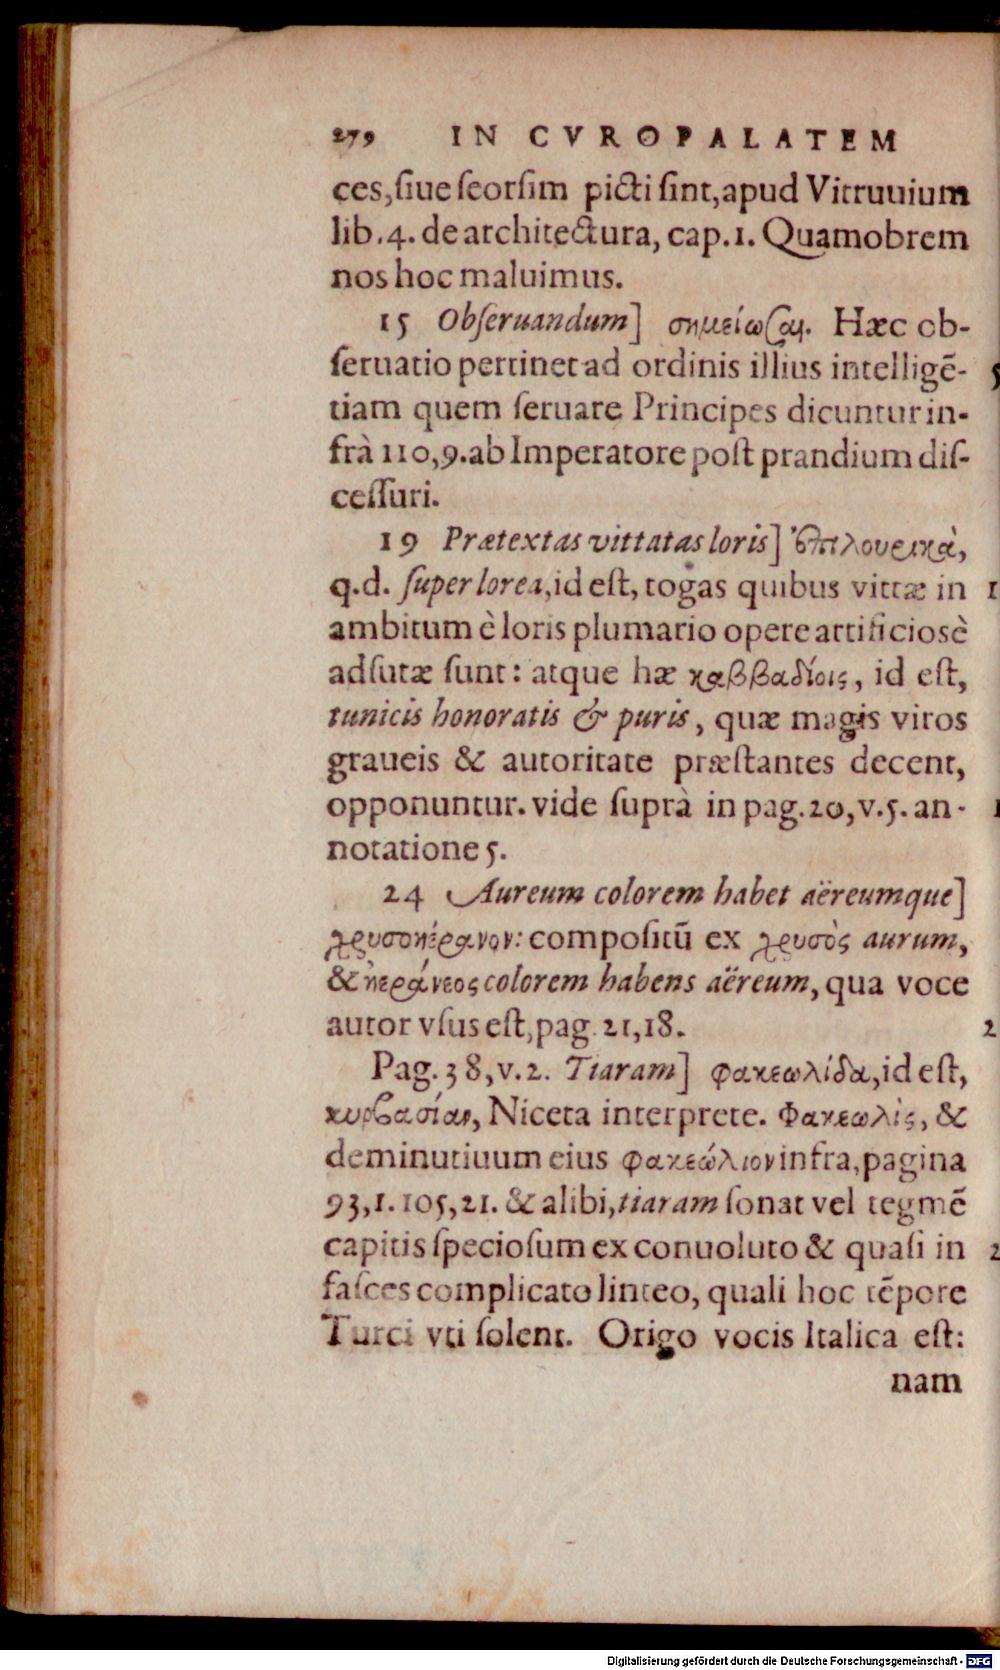 279 IN CVROPALATEM
ces, ſiue ſeorſim picti ſint, apud Vitruuium
lib. 4. de architectura, cap. 1. Quamobrem
nos hoc maluimus.
15 Obſeruandum] σημείωσαι. Hæc ob-
ſeruatio pertinet ad ordinis illius intelligē-
tiam quem ſeruare Principes dicuntur in-
frà 110,9. ab Imperatore poſt prandium diſ-
ceſſuri.
19 Prætextas vittatas loris] ἐπιλουρικὰ,
q.d. ſuper lorea, id eſt, togas quibus vittæ in
ambitum è loris plumario opere artificiosè
adſutæ ſunt: atque hæ καββαδίοις, id eſt,
tunicis honoratis & puris, quæ magis viros
graueis & autoritate præſtantes decent,
opponuntur. vide ſuprà in pag. 20, v. 5. an-
notatione 5.
24 Aureum colorem habet aëreumque]
χρυσοκέρανον: compoſitū ex χρυσὸς aurum,
& κεράνεος colorem habens aëreum, qua voce
autor vſus eſt, pag. 21,18.
Pag. 38, v. 2. Tiaram] φακεωλίδα, id eſt,
κυρβασίαν, Niceta interprete. Φακεωλὶς, &
deminutiuum eius φακεώλιον infra, pagina
93,1. 105,21. & alibi, tiaram ſonat vel tegmē
capitis ſpecioſum ex conuoluto & quaſi in
faſces complicato linteo, quali hoc tēpore
Turci vti ſolent. Origo vocis Italica eſt:
nam
Digitalisierung gefördert durch die Deutsche Forschungsgemeinschaft - DFG